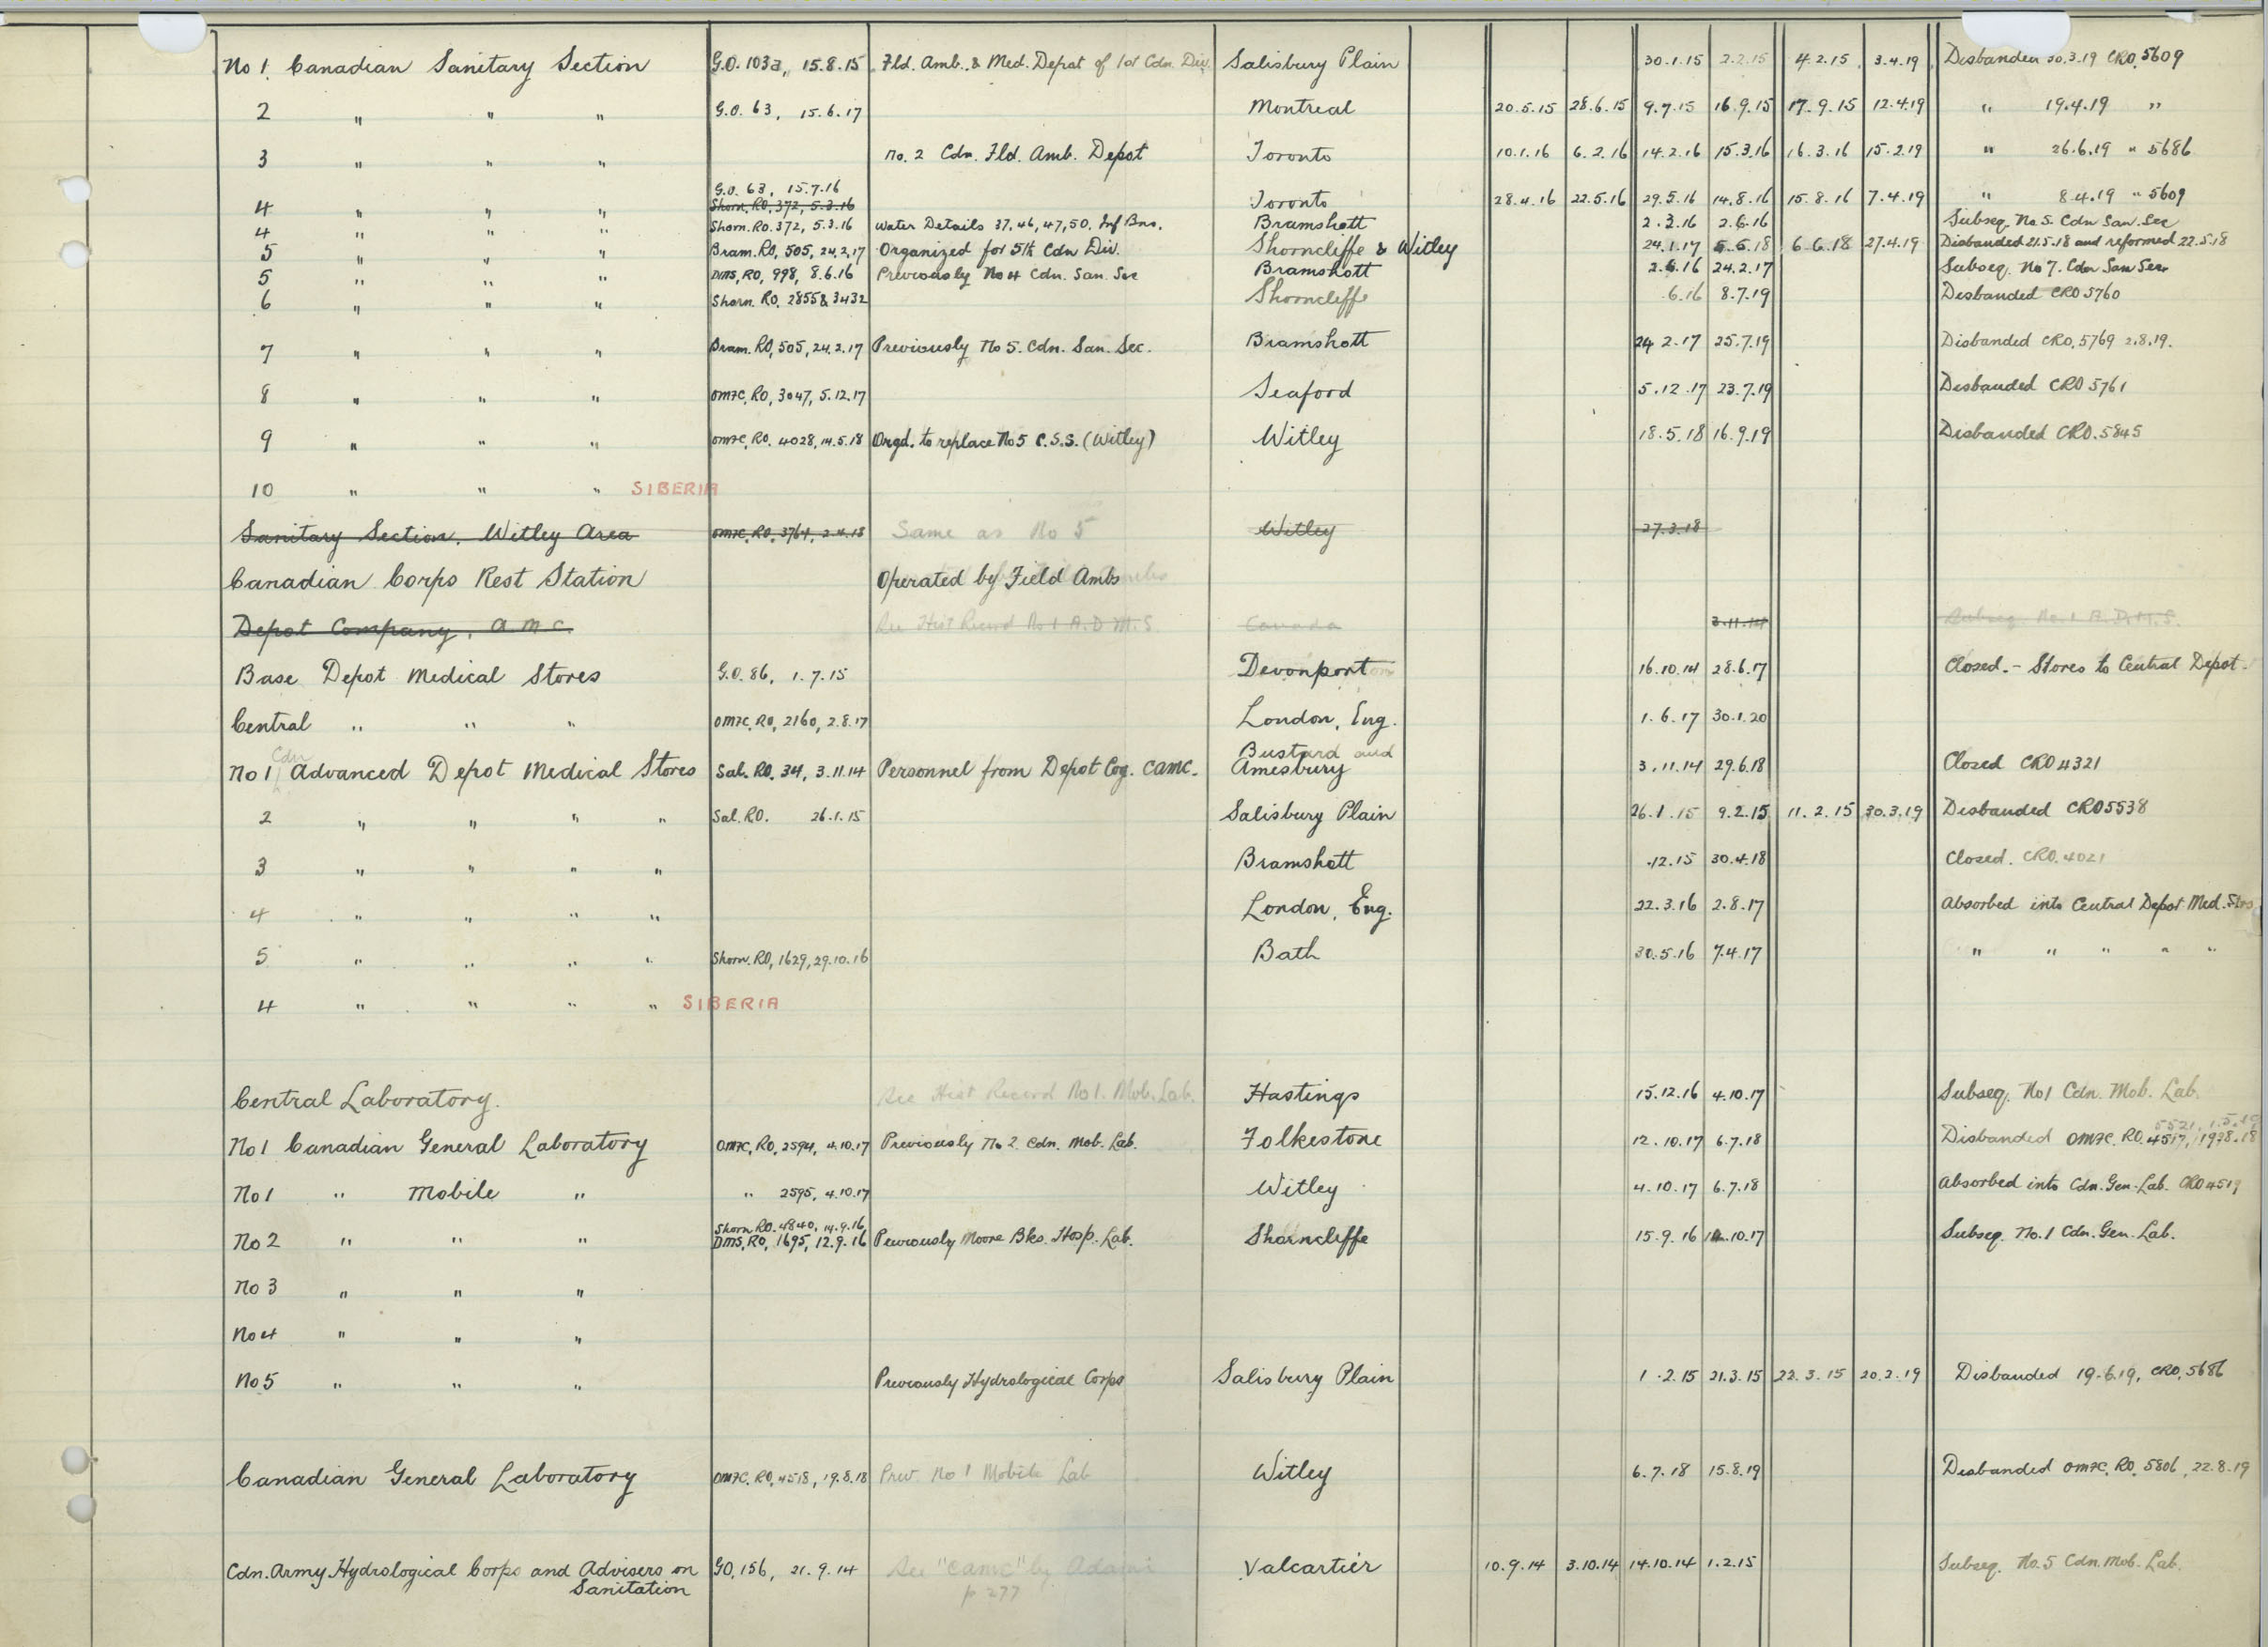 No 1. Canadian Sanitary Section G.O. 103a, 15.8.15 Fld. Amb. & Med. Depot of 1st Cdn. Div. Salisbury Plain 30.1.15 2.2.15 4.2.15 3.4.19 Disbanded 30.3.19 CRO. 5609
2 " " " G.O. 63, 15.6.17 Montreal 20.5.15 28.6.15 9.7.15 16.9.15 17.9.15 12.4.19 " 19.4.19 "
3 " " " No. 2 Cdn. Fld. Amb. Depot Toronto 10.1.16 6.2.16 14.2.16 15.3.16 16.3.16 15.2.19 " 26.6.19 " 5686
G.O. 63, 15.7.16
4 " " " Shorn. RO, 372, 5.3.16 Toronto 28.4.16 22.5.16 29.5.16 14.8.16 15.8.16 7.4.19 " 8.4.19 " 5609
4 " " " Shorn. RO. 372, 5.3.16 Water Details 37, 46, 47, 50, Inf Bns. Bramshott 2.3.16 2.6.16 Subseq. No 5. Cdn San. Sec
5 " " " Bram. RO, 505, 24.2.17 Organized for 5th Cdn Div. Shorncliffe & Witley 24.1.17 5.6.18 6.6.18 27.4.19 Disbanded 21.5.18 and reformed 22.5.18
5 " " " DMS, RO, 998, 8.6.16 Previously No 4 Cdn. San. Sec Bramshott 2.6.16 24.2.17 Subseq. No 7. Cdn San Sec.
6 " " " Shorn. RO. 2855 & 3432 Shorncliffe .6.16 8.7.19 Disbanded CRO 5760
7 " " " Bram. RO, 505, 24.2.17 Previously No 5. Cdn. San. Sec. Bramshott 24 2.17 25.7.19 Disbanded CRO, 5769 2.8.19.
8 " " " OMFC, RO, 3047, 5.12.17 Seaford 5.12.17 23.7.19 Disbanded CRO 5761
9 " " " OMFC, RO. 4028, 14.5.18 Orgd. to replace No 5 C.S.S. (Witley) Witley 18.5.18 16.9.19 Disbanded CRO. 5845
10 " " " SIBERIA
Sanitary Section. Witley Area OMFC, RO, 3764, 2.4.18 Same as No 5 Witley 27.3.18
Canadian Corps Rest Station Operated by Field Ambs
Depot Company, A.M.C. See Hist Record No 1 A.D.M.S. Canada 3.11.14 Subseq No. 1 A.D.M.S.
Base Depot Medical Stores G.O. 86, 1.7.15 Devonport 16.10.14 28.6.17 Closed. - Stores to Central Depot.
Central " " " OMFC, RO, 2160, 2.8.17 London, Eng. 1.6.17 30.1.20
Cdn Bustard and
No 1 Advanced Depot Medical Stores Sal. RO. 34, 3.11.14 Personnel from Depot Coy. CAMC. Amesbury 3.11.14 29.6.18 Closed CRO 4321
2 " " " " Sal. RO. 26.1.15 Salisbury Plain 26.1.15 9.2.15 11.2.15 30.3.19 Disbanded CRO 5538
3 " " " " Bramshott .12.15 30.4.18 Closed. CRO. 4021
4 " " " " London, Eng. 22.3.16 2.8.17 Absorbed into Central Depot Med. Strs
5 " " " " Shorn. RO, 1629, 29.10.16 Bath 30.5.16 7.4.17 " " " " "
4 " " " " SIBERIA
Central Laboratory. See Hist Record No 1. Mob. Lab. Hastings 15.12.16 4.10.17 Subseq. No 1 Cdn. Mob. Lab.
5521, 1.5.19
No 1 Canadian General Laboratory OMFC, RO, 2594, 4.10.17 Previously No 2 Cdn. Mob. Lab. Folkestone 12.10.17 6.7.18 Disbanded OMFC. RO. 4517,
No 1 " Mobile " " 2595, 4.10.17 Witley 4.10.17 6.7.18 Absorbed into Cdn. Gen. Lab. CRO 4519
Shorn RO. 4840, 14.9.16
No 2 " " " DMS, RO, 1695, 12.9.16 Previously Moore Bks. Hosp. Lab. Shorncliffe 15.9.16 .10.17 Subseq. No. 1 Cdn. Gen. Lab.
No 3 " " "
No 4 " " "
No 5 " " " Previously Hydrological Corps Salisbury Plain 1.2.15 21.3.15 22.3.15 20.2.19 Disbanded 19.6.19, CRO, 5686
Canadian General Laboratory OMFC, RO, 4518, 19.8.18 Prev. No 1 Mobile Lab Witley 6.7.18 15.8.19 Disbanded OMFC, RO, 5806, 22.8.19
Cdn. Army Hydrological Corps and Advisers on GO, 156, 21.9.14 See "CAMC" by Adami Valcartier 10.9.14 3.10.14 14.10.14 1.2.15 Subseq. No. 5 Cdn. Mob. Lab.
Sanitation p 277